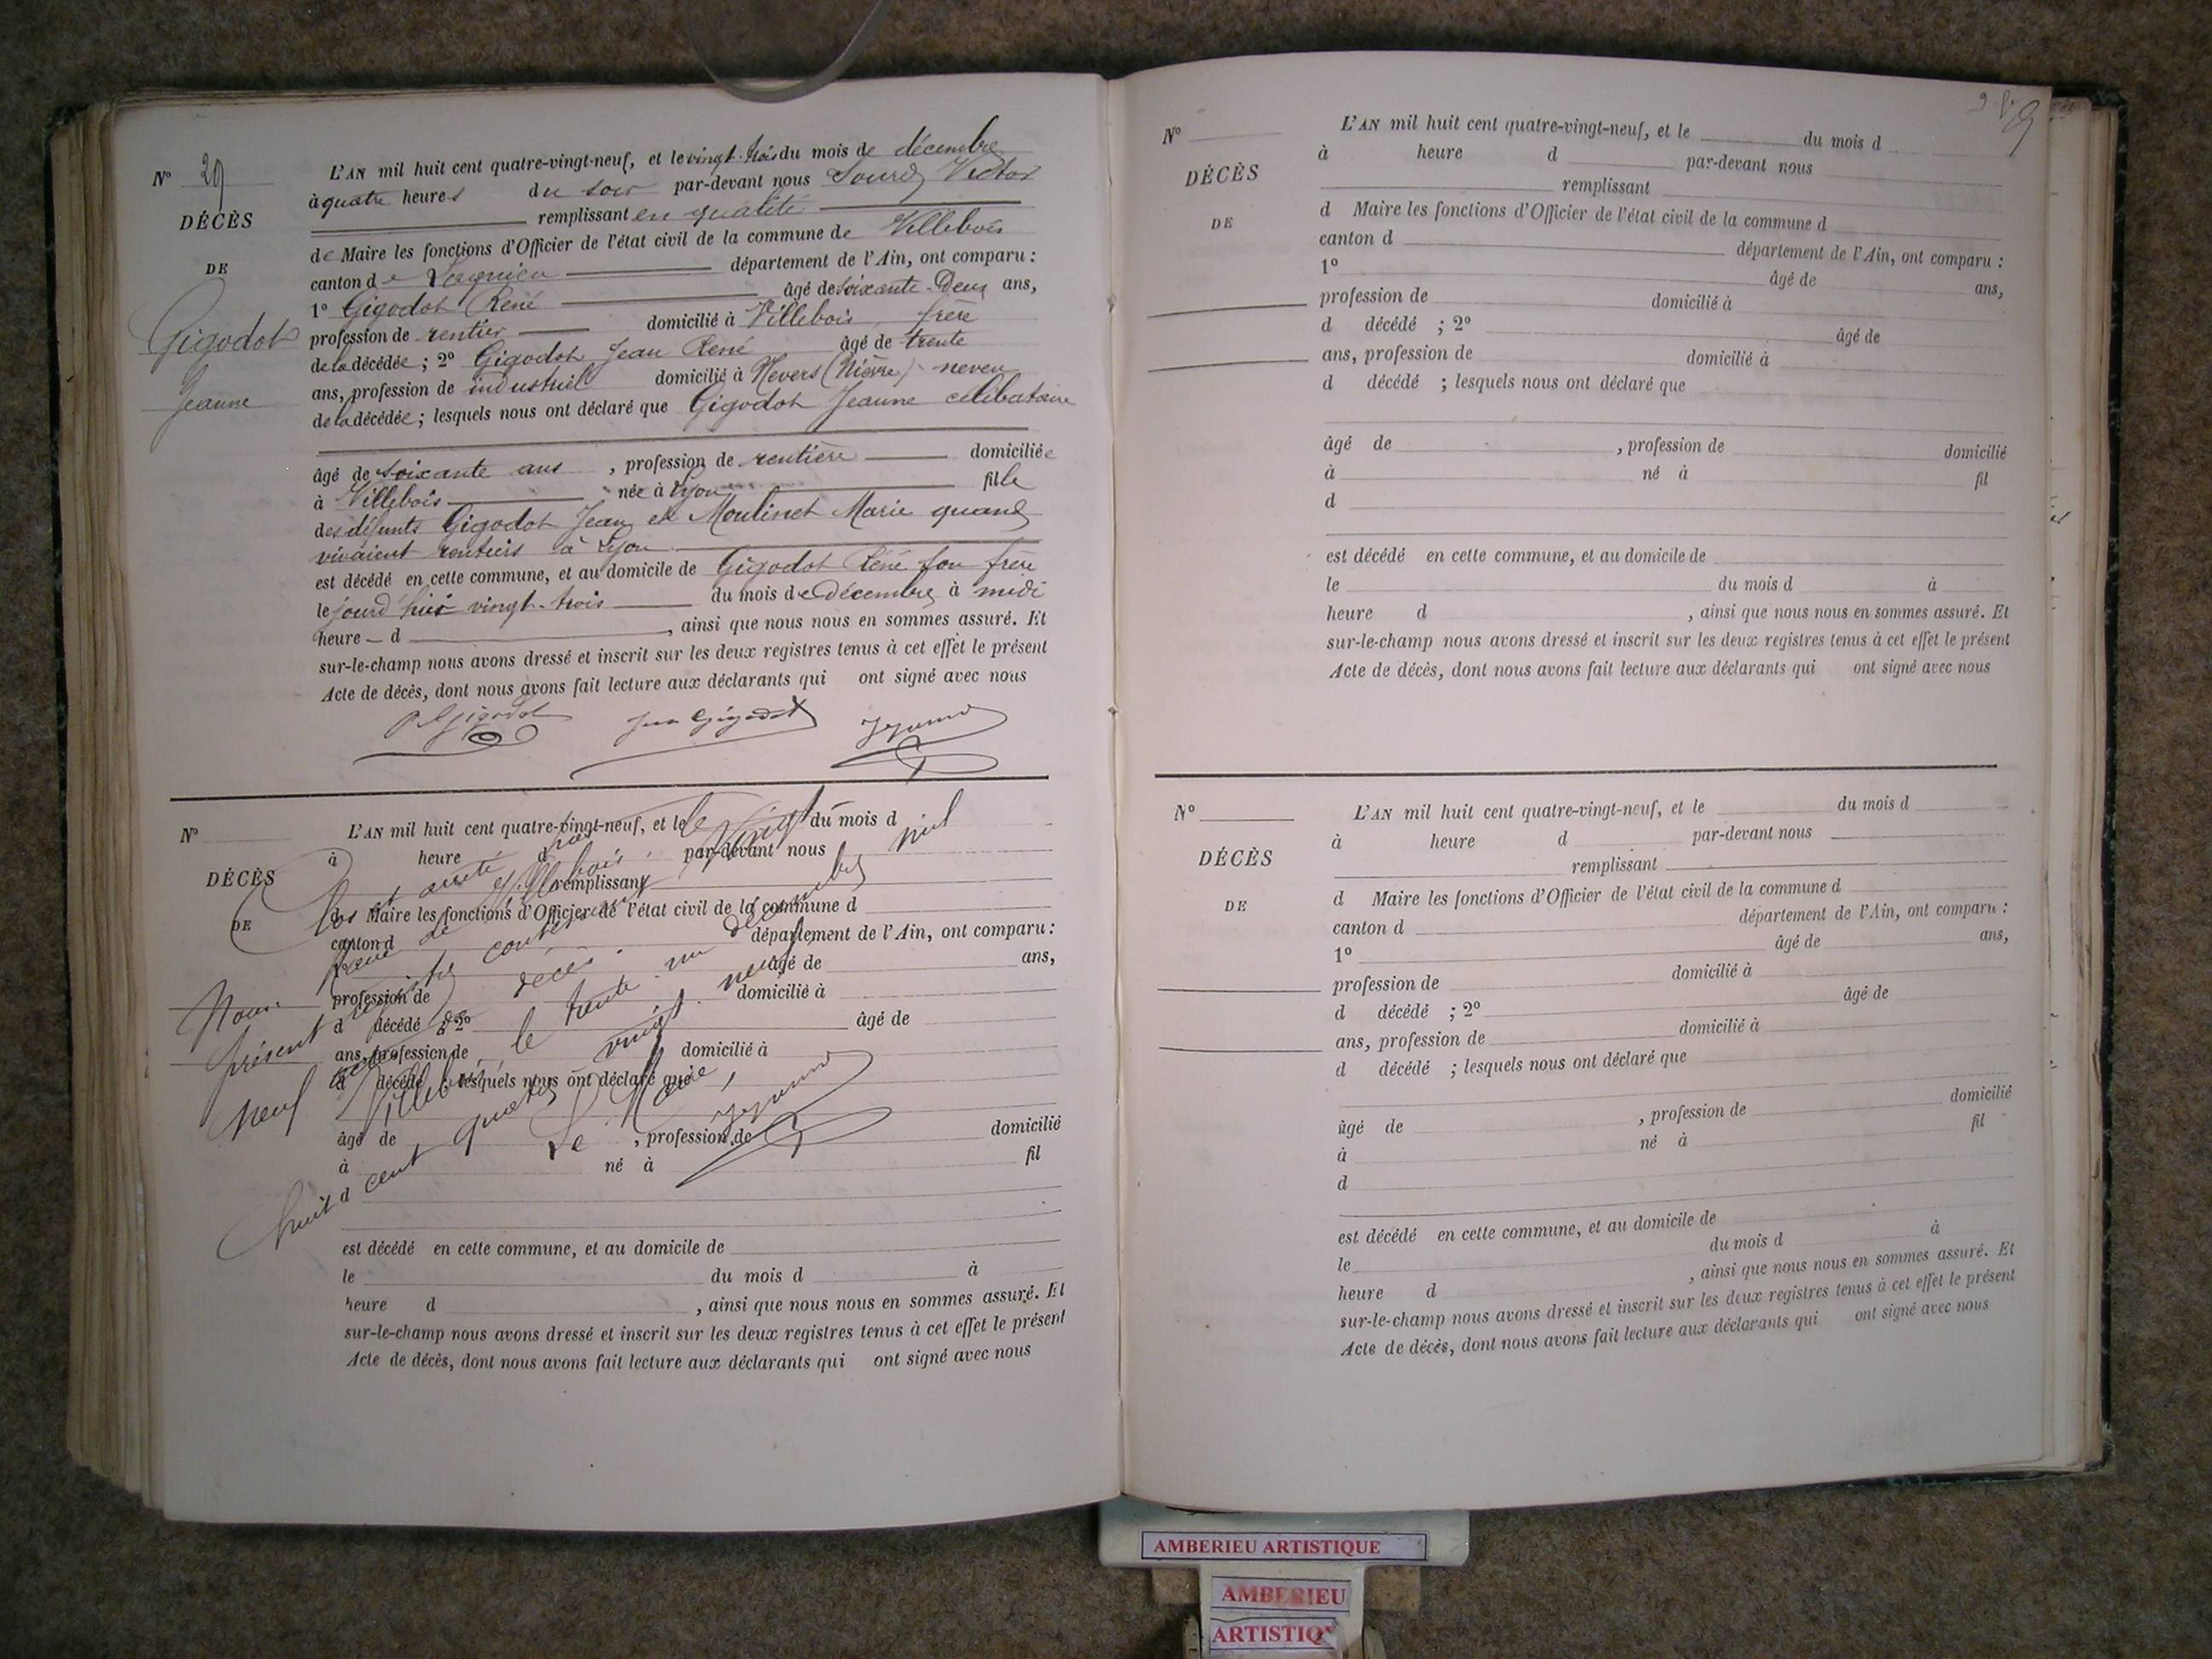 Nº 29
DÉCÈS
DE
Gigodot
Jeanne
L'AN mil huit cent quatre-vingt-neuf, et le vingt-trois du mois de décembre
à quatre heures du soir par-devant nous Sourd Victor
remplissant en qualité
de Maire les fonctions d'Officier de l'état civil de la commune de Villebois
canton de Lagnieu département de l'Ain, ont comparu :
1º Gigodot René âgé de soixante-Deux ans,
profession de rentier domicilié à Villebois, frère
de la décédée ; 2º Gigodot Jean René âgé de trente
ans, profession de industriel domicilié à Nevers (Nièvre) neveu
de la décédée ; lesquels nous ont déclaré que Gigodot Jeanne célibataire
âgé de soixante ans , profession de rentière domiciliée
à Villebois née à Lyon fille
des défunts Gigodot Jean et Moulinet Marie quand
vivaient rentiers à Lyon
est décédé en cette commune, et au domicile de Gigodot René son frère
le jourd'hui vingt-trois du mois de décembre à midi
heure d , ainsi que nous nous en sommes assuré. Et
sur-le-champ nous avons dressé et inscrit sur les deux registres tenus à cet effet le présent
Acte de décès, dont nous avons fait lecture aux déclarants qui ont signé avec nous
Gigodot Jean Gigodot
Nº
DÉCÈS
DE
L'AN mil huit cent quatre-vingt-neuf, et le du mois d
à heure d par-devant nous
remplissant
d Maire les fonctions d'Officier de l'état civil de la commune d
canton d département de l'Ain, ont comparu :
1º âgé de ans,
profession de domicilié à
d décédé ; 2º âgé de
ans, profession de domicilié à
d décédé ; lesquels nous ont déclaré que
âgé de , profession de domicilié
à né à fil
d
est décédé en cette commune, et au domicile de
le du mois d à
heure d , ainsi que nous nous en sommes assuré. Et
sur-le-champ nous avons dressé et inscrit sur les deux registres tenus à cet effet le présent
Acte de décès, dont nous avons fait lecture aux déclarants qui ont signé avec nous
Clos et arrêté par
Nous de Villebois, le
présent registre contenant vingt
neuf actes de décès.
Villebois, le trente-un décembre mil
huit cent quatre vingt-neuf
Le Maire,
Nº
DÉCÈS
DE
L'AN mil huit cent quatre-vingt-neuf, et le du mois d
à heure d par-devant nous
remplissant
d Maire les fonctions d'Officier de l'état civil de la commune d
canton d département de l'Ain, ont comparu :
1º âgé de ans,
profession de domicilié à
d décédé ; 2º âgé de
ans, profession de domicilié à
d décédé ; lesquels nous ont déclaré que
âgé de , profession de domicilié
à né à fil
d
est décédé en cette commune, et au domicile de
le du mois d à
heure d , ainsi que nous nous en sommes assuré. Et
sur-le-champ nous avons dressé et inscrit sur les deux registres tenus à cet effet le présent
Acte de décès, dont nous avons fait lecture aux déclarants qui ont signé avec nous
Nº
DÉCÈS
DE
L'AN mil huit cent quatre-vingt-neuf, et le du mois d
à heure d par-devant nous
remplissant
d Maire les fonctions d'Officier de l'état civil de la commune d
canton d département de l'Ain, ont comparu :
1º âgé de ans,
profession de domicilié à
d décédé ; 2º âgé de
ans, profession de domicilié à
d décédé ; lesquels nous ont déclaré que
âgé de , profession de domicilié
à né à fil
d
est décédé en cette commune, et au domicile de
le du mois d à
heure d , ainsi que nous nous en sommes assuré. Et
sur-le-champ nous avons dressé et inscrit sur les deux registres tenus à cet effet le présent
Acte de décès, dont nous avons fait lecture aux déclarants qui ont signé avec nous
AMBERIEU ARTISTIQUE
AMBERIEU
ARTISTIQ